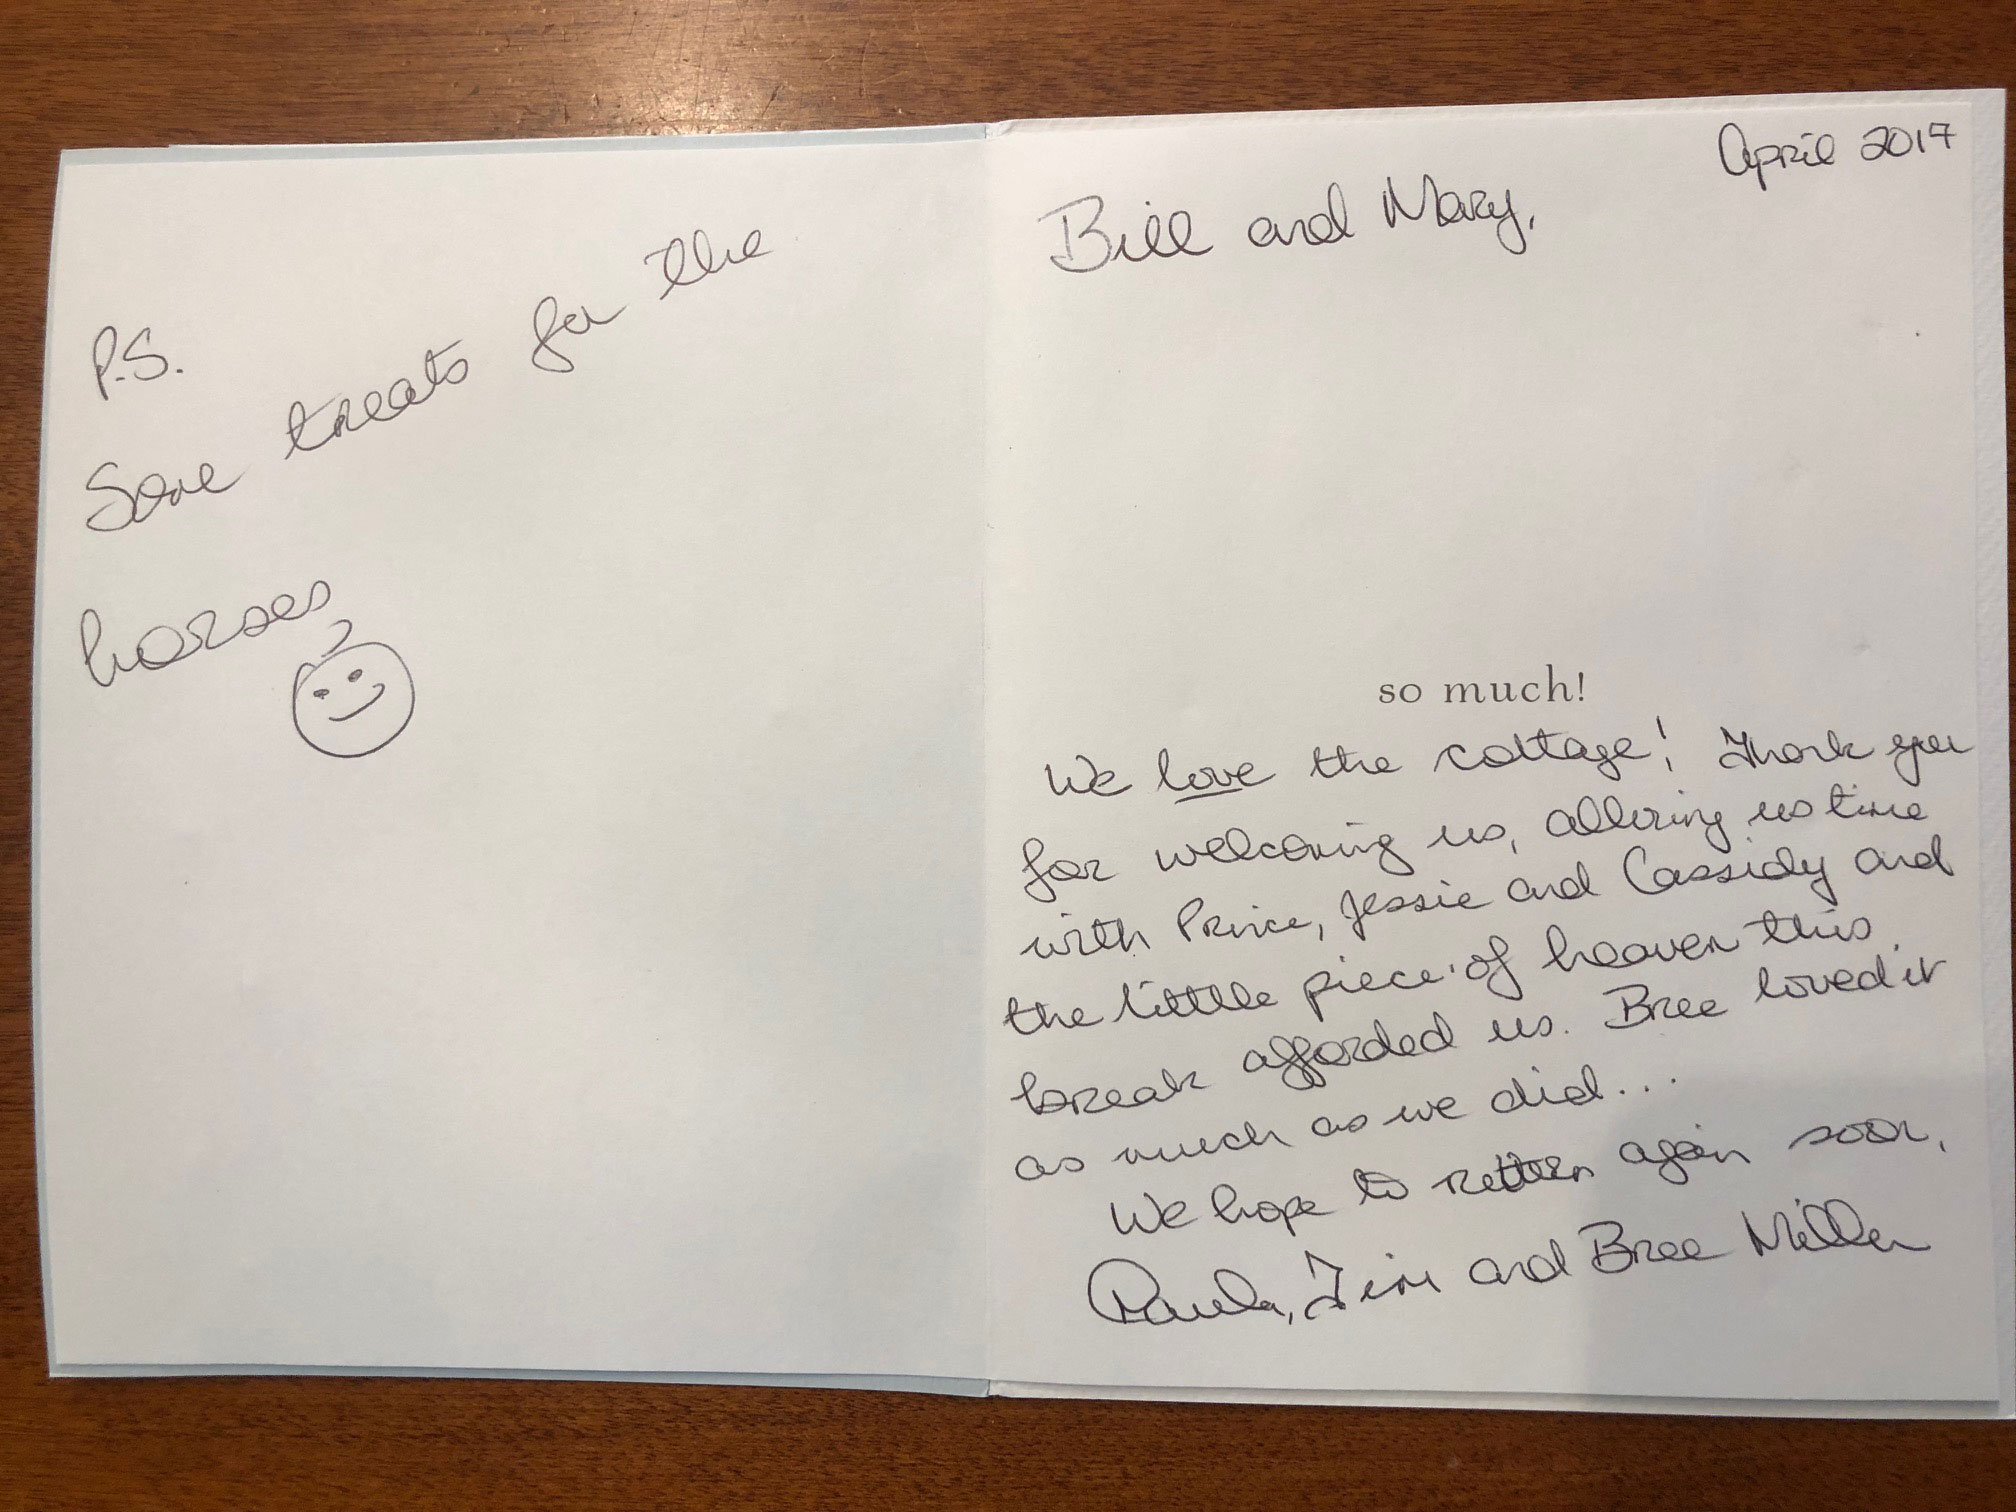 P.S.
Some treats for the
horses
April 2017
Bill and Mary,
so much!
We love the cottage! Thank you
for welcoming us, allowing us time
with Prince, Jessie and Cassidy and
the little piece of heaven this
break afforded us. Bree loved it
as much as we did...
We hope to return again soon,
Paula, Jim and Bree Miller